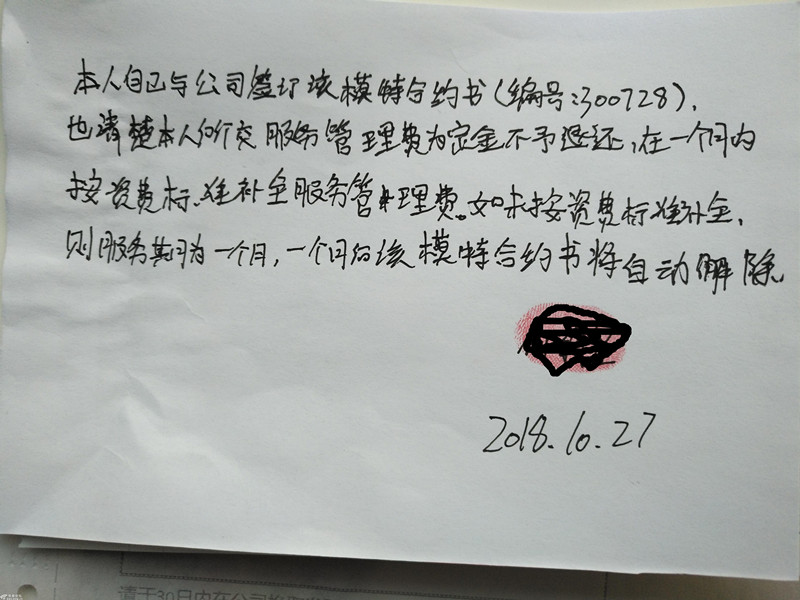 本人自己与公司签订该模特合约书(编号:300728),
也清楚本人所交服务管理费为定金不予退还,在一个月内
按资费标准补全服务管理费。如未按资费标准补全,
则服务期为一个月,一个月后该模特合约书将自动解除
2018.10.27
请于30日内在公司